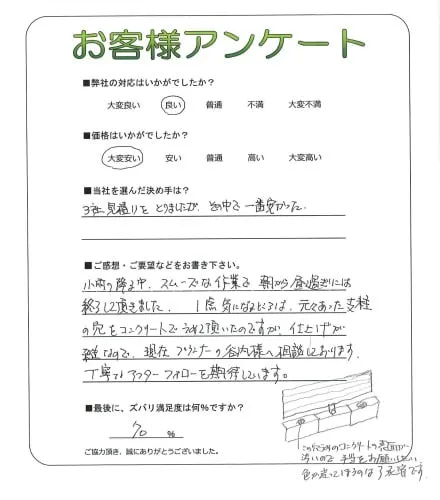 お客様アンケート
■弊社の対応はいかがでしたか?
大変良い 良い 普通 不満 大変不満
■価格はいかがでしたか?
大変安い 安い 普通 高い 大変高い
■当社を選んだ決め手は?
3社見積りをとりましたが、その中で一番安かった。
■ご感想・ご要望などをお書き下さい。
小雨の降る中、スムーズな作業で朝から昼過ぎには
終了して頂きました。1点気になるところは、元々あった支柱
の穴をコンクリートでうめて頂いたのですが、仕上げが
雑なので、現在プランナーの谷内様へ相談しております。
丁寧なアフターフォローを期待しています。
■最後に、ズバリ満足度は何%ですか?
70 %
ご協力頂き、誠にありがとうございました。
のコンクリートの表面が
ので 手直をお願いしたい
色が違ってしまうのは了承済です。